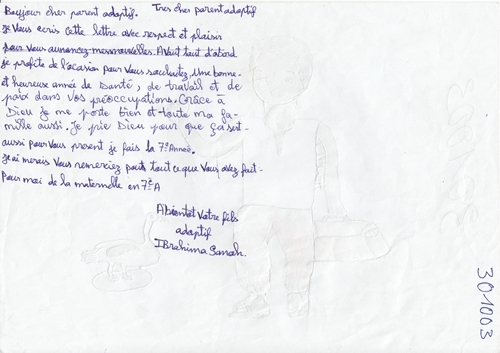 Bonjour cher parent adoptif. Tres cher parent adoptif
je Vous ecris cette lettre avec respect et plaisir
pour Vous annoncez mes nouvelles. Avant tout d'abord
je profite de l'ocasion pour Vous souhaitez, Une bonne
et heureuse année de santé, de travail et de
paix dans vos preoccupations. Grâce à
Dieu je me porte bien et toute ma fa-
mille aussi. Je prie Dieu pour que ça soit
aussi pour Vous present je fais la 7e Année.
je aimerais Vous remerciez pour tout ce que Vous avez fait
pour moi de la maternelle en 7e A
A bientot Votre fils
adoptif
IBrahima
301003